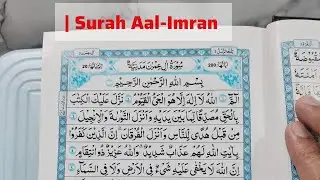 | Surah Aal-Imran
سُوْرَةُ اٰلِ عِمْرٰنَ مَدَنِيَّةٌ
بِسْمِ اللّٰهِ الرَّحْمٰنِ الرَّحِيْمِ
الٓمّٓ اللّٰهُ لَاۤ اِلٰهَ اِلَّا هُوَ الْحَيُّ الْقَيُّوْمُ نَزَّلَ عَلَيْكَ الْكِتٰبَ
بِالْحَقِّ مُصَدِّقًا لِّمَا بَيْنَ يَدَيْهِ وَاَنْزَلَ التَّوْرٰىةَ وَالْاِنْجِيْلَ
مِنْ قَبْلُ هُدًى لِّلنَّاسِ وَاَنْزَلَ الْفُرْقَانَ اِنَّ الَّذِيْنَ كَفَرُوْا
بِاٰيٰتِ اللّٰهِ لَهُمْ عَذَابٌ شَدِيْدٌ وَاللّٰهُ عَزِيْزٌ ذُو انْتِقَامٍ
اِنَّ اللّٰهَ لَا يَخْفٰى عَلَيْهِ شَيْءٌ فِي الْاَرْضِ وَلَا فِي السَّمَآءِ